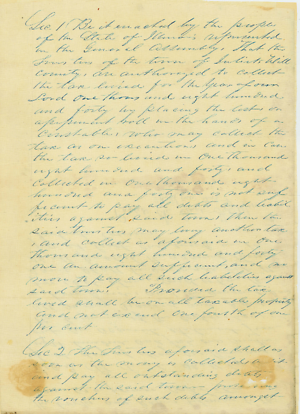 Sec 1 Be it enacted by the people
of the State of Illinois represented
in the General Assembly That the
Trustees of the town of Juliet Will
county are authorized to collect
the tax levied for the year of our
Lord one thousand eight hundred
and forty by placing the lists or
assessment roll in the hands of a
Constable who may collect the
tax as on executions and in case
the tax so levied in one thousand
eight hundred and forty and
collected in one thousand eight
hundred and forty one is not suf
ficient to pay all debts and liabil
ities against said town Then the
said trustees may levy another tax
and collect as aforesaid in one
thousand eight hundred and forty
one to an amount sufficient and no
more to pay all such liabilities against
said town Provided the tax
levied shall be on all taxable property
and not exceed one fourth of one
per cent
Sec 2 The Trustees aforesaid shall as
soon as the money is collected
and pay all outstanding debts
against the said town
the vouchers of such debts amongst